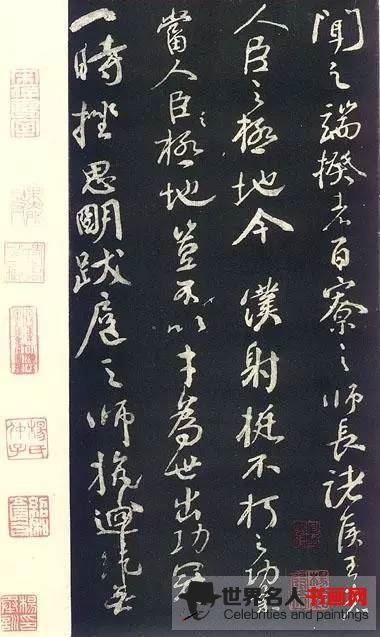 聞之端揆者百寮之師長諸侯王者
人臣之極地今僕射挺不朽之功業
當人臣之極地豈不以才為世出功冠
一時挫思明跋扈之師抗迴紇無
楊氏仲子
世界名人书画网
Celebrities and paintings